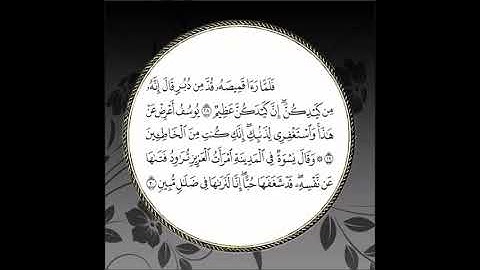 فَلَمَّا رَءَا قَمِيصَهُۥ قُدَّ مِن دُبُرٍ قَالَ إِنَّهُۥ
مِن كَيْدِكُنَّ ۖ إِنَّ كَيْدَكُنَّ عَظِيمٌ ٢٨ يُوسُفُ أَعْرِضْ عَنْ
هَٰذَا ۚ وَٱسْتَغْفِرِى لِذَنۢبِكِ ۖ إِنَّكِ كُنتِ مِنَ ٱلْخَاطِـِٔينَ
٢٩ ۞ وَقَالَ نِسْوَةٌ فِى ٱلْمَدِينَةِ ٱمْرَأَتُ ٱلْعَزِيزِ تُرَٰوِدُ فَتَىٰهَا
عَن نَّفْسِهِۦ ۖ قَدْ شَغَفَهَا حُبًّا ۖ إِنَّا لَنَرَىٰهَا فِى ضَلَٰلٍ مُّبِينٍ ٣٠